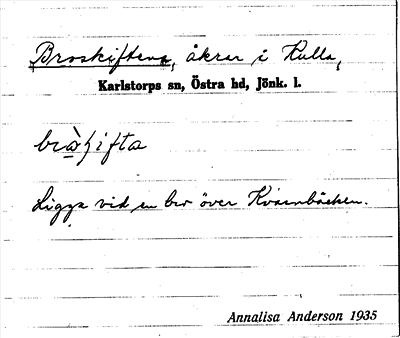 Broskiftena, åkrar i Kulla,
Karlstorps sn, Östra hd, Jönk. l.
Ligga vid en bro över Kvarnbäcken.
Annalisa Anderson 1935